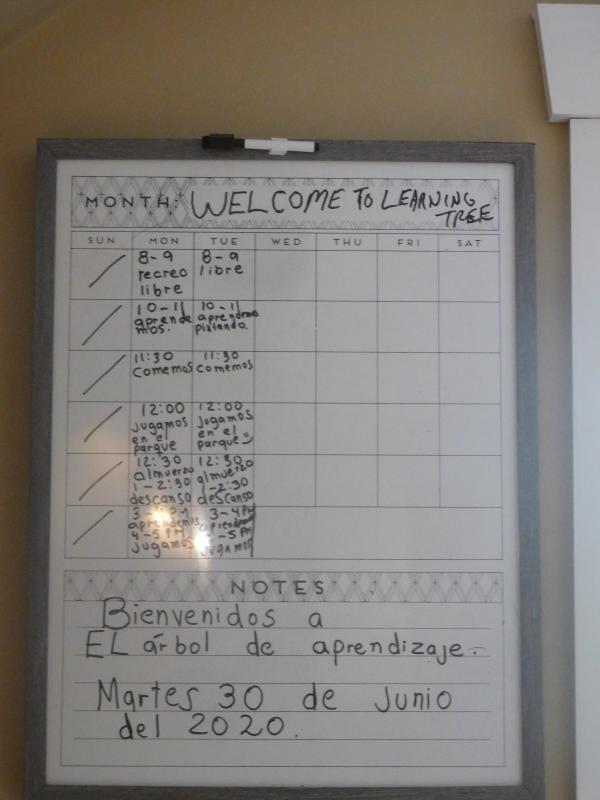 MONTH: WELCOME TO LEARNING
TREE
SUN MON TUE WED THU FRI SAT
8-9
recreo
libre
8-9
libre
10-11
aprende
mos.
10-11
aprendemos
pintando
11:30
comemos
11:30
comemos
12:00
jugamos
en el
parque
12:00
jugamos
en el
parque
12:30
almuerzo
1-2:30
descanso
12:30
almuerzo
1-2:30
descanso
3-4 PM
aprendemos
4-5 PM
jugamos
3-4 PM
aprendemos
4-5 PM
jugamos
NOTES
Bienvenidos a
EL árbol de aprendizaje.
Martes 30 de Junio
del 2020.